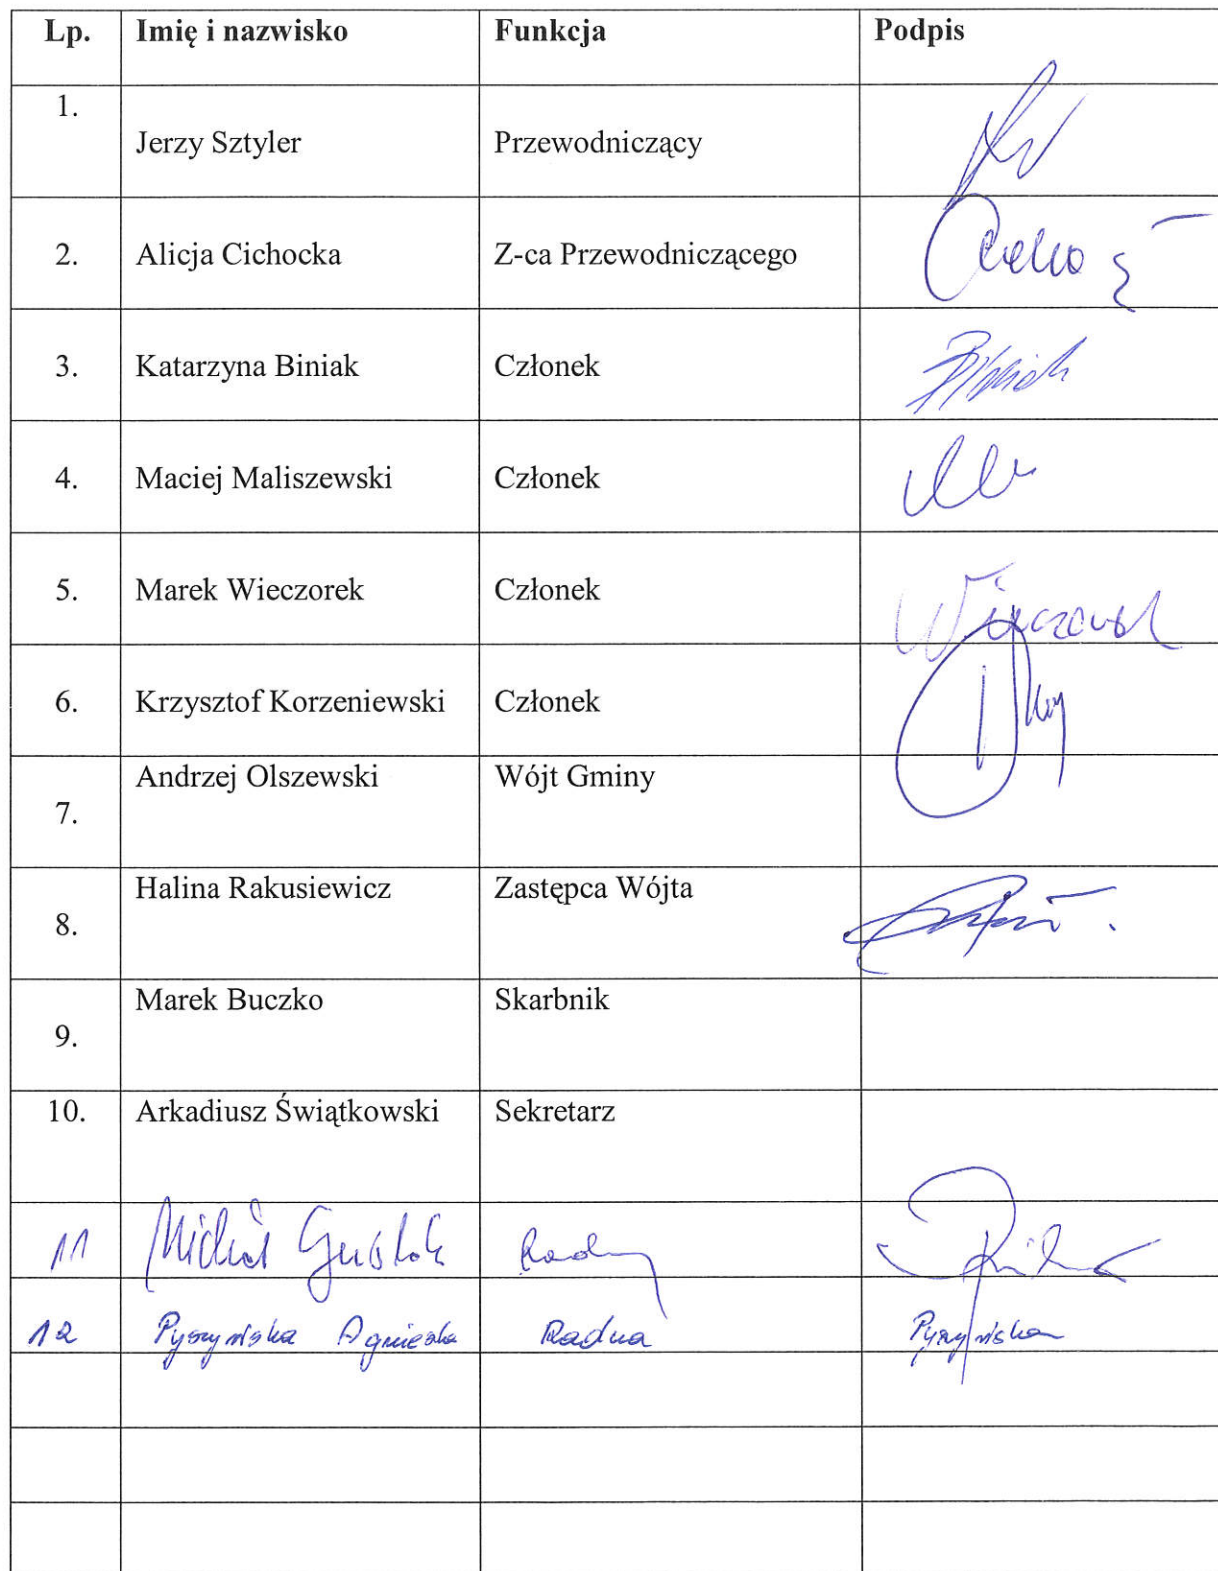 Lp. Imię i nazwisko Funkcja Podpis
1. Jerzy Sztyler Przewodniczący
2. Alicja Cichocka Z-ca Przewodniczącego
3. Katarzyna Biniak Członek
4. Maciej Maliszewski Członek
5. Marek Wieczorek Członek Wieczorek
6. Krzysztof Korzeniewski Członek
7. Andrzej Olszewski Wójt Gminy
8. Halina Rakusiewicz Zastępca Wójta
9. Marek Buczko Skarbnik
10. Arkadiusz Świątkowski Sekretarz
11 Michał Radny
12 Pyszyńska Agnieszka Radna Pyszyńska